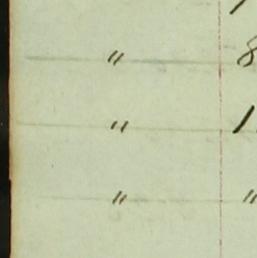 " 8
" 1
" "